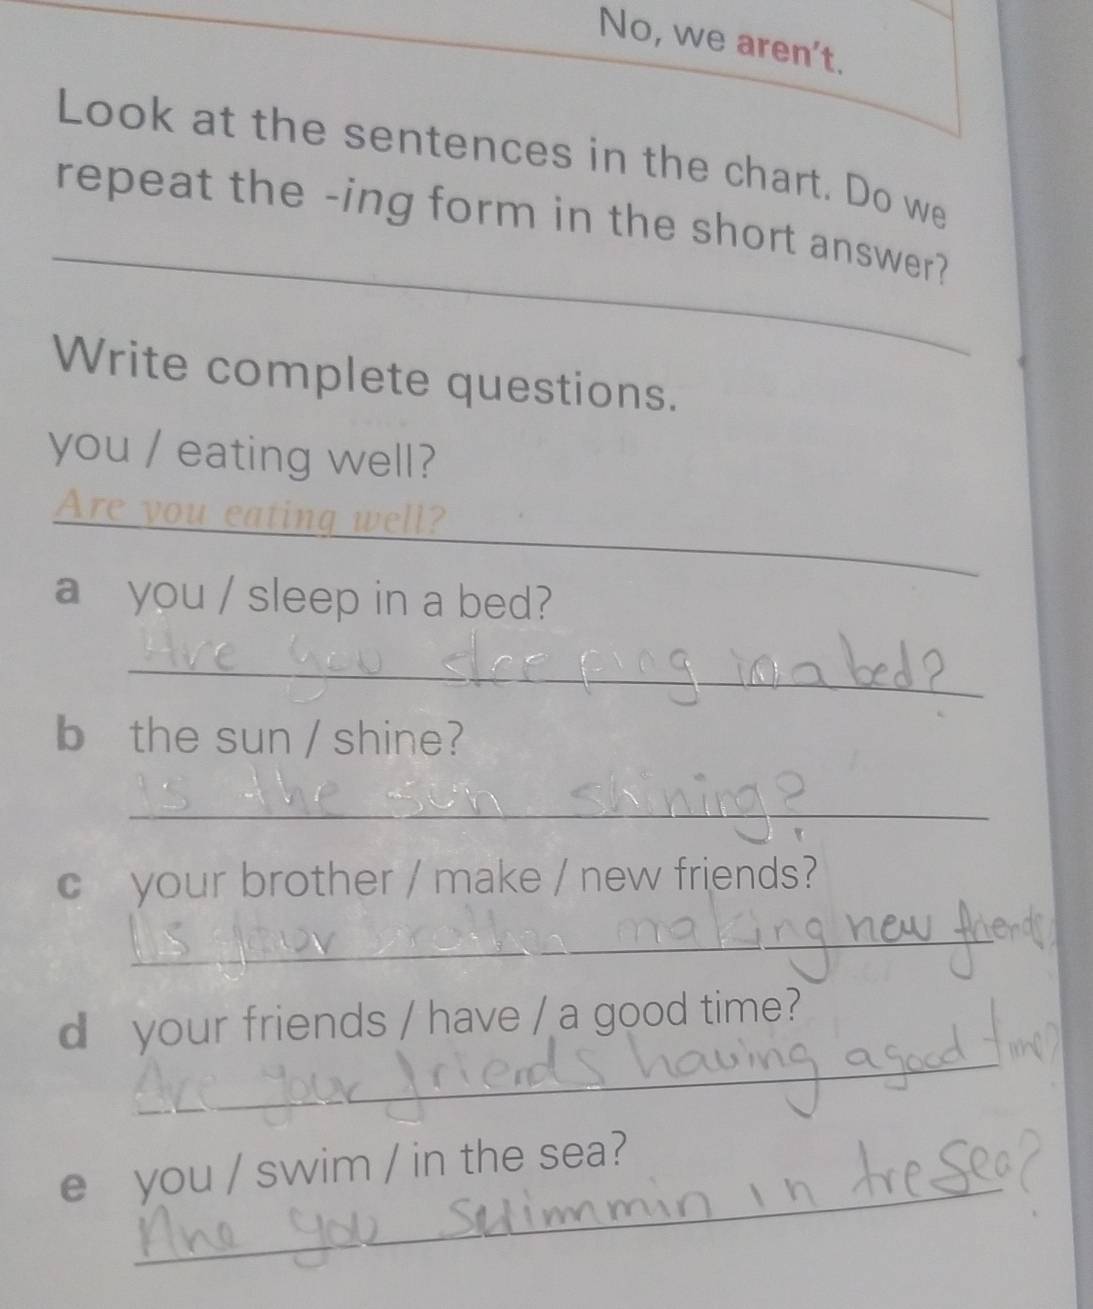 No, we aren't.
Look at the sentences in the chart. Do we
repeat the -ing form in the short answer?
Write complete questions.
you / eating well?
Are you eating well?
a you / sleep in a bed?
Are you sleeping in a bed?
b the sun / shine?
is the sun shining?
c your brother / make / new friends?
Is your brother making new friends?
d your friends / have / a good time?
Are your friends having a good time?
e you / swim / in the sea?
Are you swimmin in the sea?